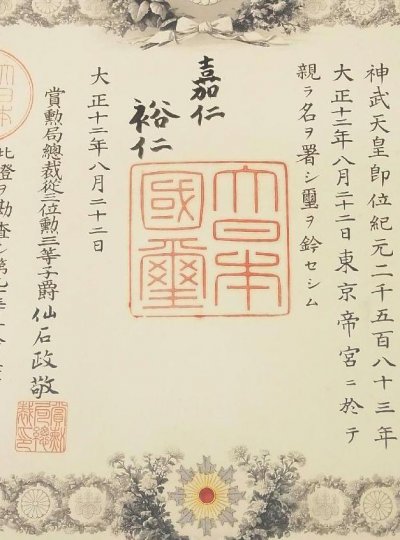 神武天皇即位紀元二千五百八十三年
大正十二年八月二十二日東京帝宮ニ於テ
親ラ名ヲ署シ璽ヲ鈐セシム
嘉仁
裕仁
大日本
國璽
大正十二年八月二十二日
賞勲局總裁從三位勲三等子爵仙石政敬
賞勲
局總
裁印
大日本
此證ヲ勘査シ第九